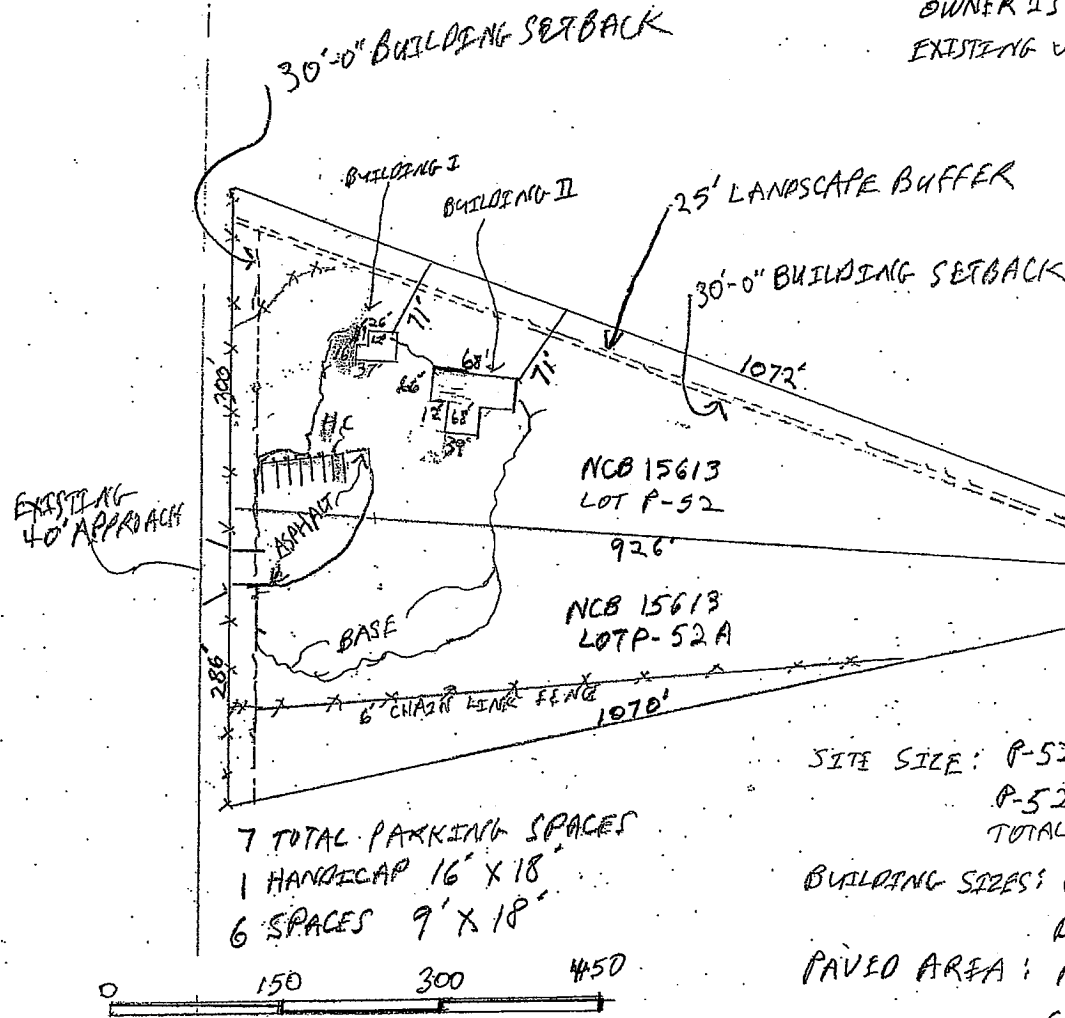 OWNER IS
30'-0" BUILDING SETBACK
EXISTING
BUILDING I
BUILDING II
25' LANDSCAPE BUFFER
30'-0" BUILDING SETBACK
1072'
300'
26'
71'
37'
68'
71'
12'
68'
39'
HC
NCB 15613
LOT P-52
EXISTING
40' APPROACH
ASPHALT
926'
NCB 15613
LOT P-52A
BASE
286'
6' CHAIN LINK FENC
1070'
SITE SIZE: P-52
P-52
TOTAL
7 TOTAL PARKING SPACES
1 HANDICAP 16' X 18'
6 SPACES 9' X 18'
BUILDING SIZES:
PAVED AREA:
0 150 300 450